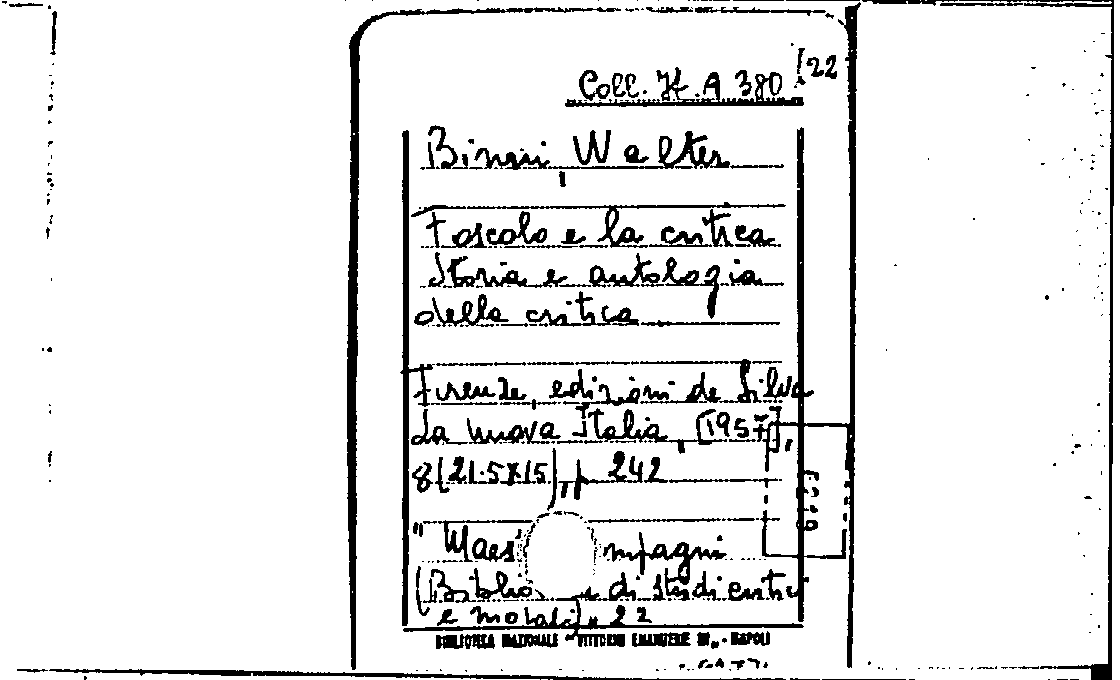 Coll. It. A 380 [22
Binni, Walter
Foscolo e la critica
Storia e antologia
della critica
Firenze, edizioni de Silva
La nuova Italia, [1957],
8(21.5X15), p. 242
" Maes mpagni
(Biblio di studi critici
e morali) n 22
BIBLIOTECA NAZIONALE "VITTORIO EMANUELE III„ - NAPOLI